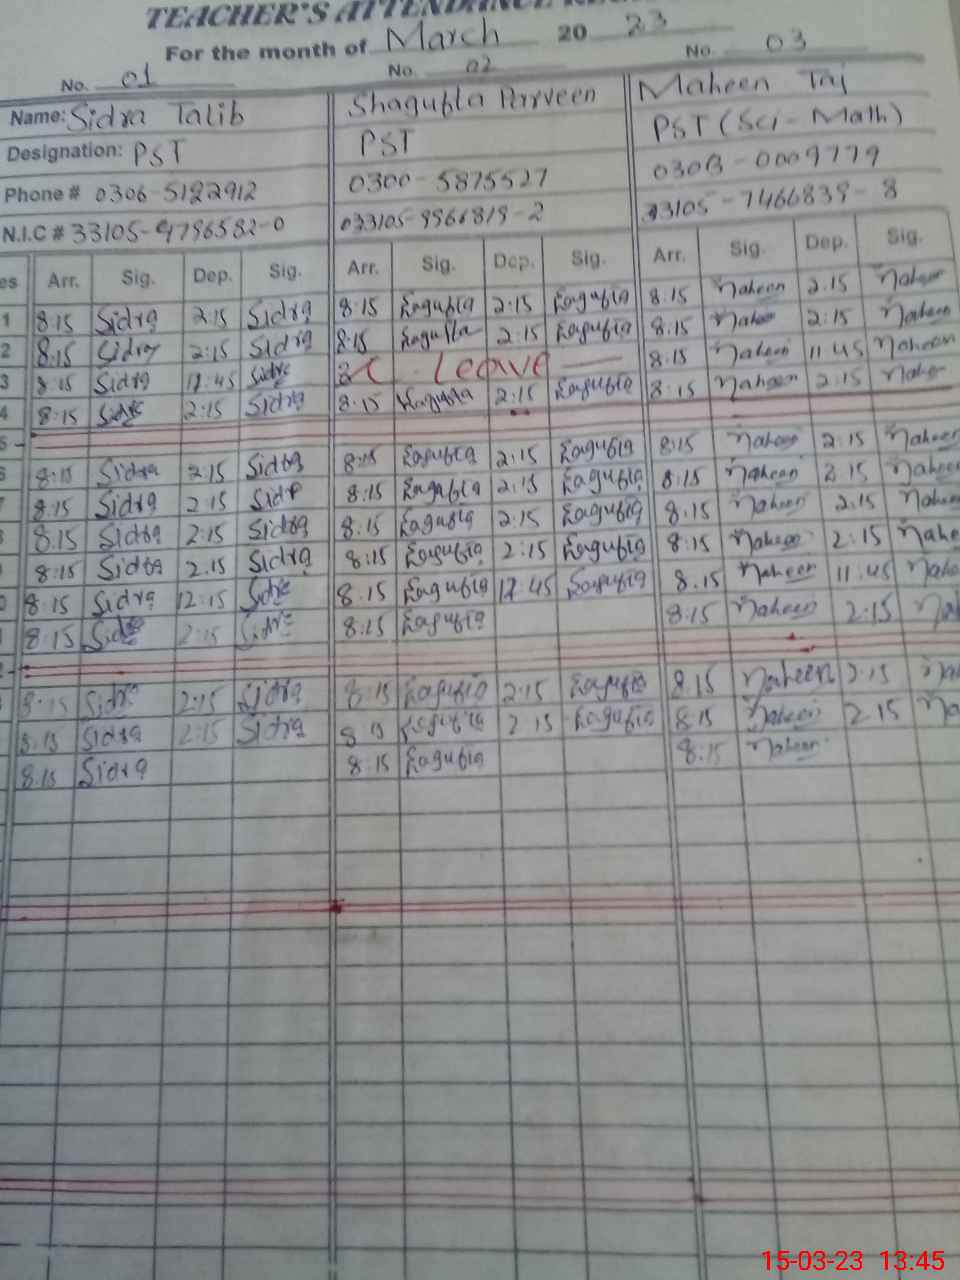 TEACHER'S ATTENDANCE
For the month of March 20 23
No. 01 No. 02 No. 03
Name: Sidra Talib Shagufta Parveen Maheen Taj
Designation: PST PST PST (Sci - Math)
Phone # 0306-5182912 0300-5875527 0303-0009779
N.I.C # 33105-9796582-0 033105-9966819-2 33105-7466839-8
es Arr. Sig. Dep. Sig. Arr. Sig. Dep. Sig. Arr. Sig. Dep. Sig.
1 8:15 Sidra 2:15 Sidra 8:15 Shagufta 2:15 Shagufta 8:15 Maheen 2.15 Maheen
2 8:15 Sidra 2:15 Sidra 8:15 Shagufta 2:15 Shagufta 8:15 Maheen 2:15 Maheen
3 8:15 Sidra 12:45 Sidra Leave 8:15 Maheen 11 45 Maheen
4 8:15 Sidra 2:15 Sidra 8:15 Shagufta 2:15 Shagufta 8:15 Maheen 2:15 Maheen
5
8:15 Sidra 2:15 Sidra 8:15 Shagufta 2:15 Shagufta 8:15 Maheen 2:15 Maheen
8:15 Sidra 2:15 Sidra 8:15 Shagufta 2:15 Shagufta 8:15 Maheen 2 15 Maheen
8:15 Sidra 2:15 Sidra 8:15 Shagufta 2:15 Shagufta 8:15 Maheen 2:15 Mahee
8:15 Sidra 2.15 Sidra 8:15 Shagufta 2:15 Shagufta 8:15 Maheen 2:15 Mahe
8:15 Sidra 12:15 Sidra 8:15 Shagufta 12:45 Shagufta 8.15 Maheen 11:45 Mahe
8:15 Sidra 2:15 Sidra 8:15 Shagufta 8:15 Maheen 2:15 Mah
8:15 Sidra 2:15 Sidra 8:15 Shagufta 2:15 Shagufta 8.15 Maheen 2:15 Mah
8:15 Sidra 2:15 Sidra 8:15 Shagufta 2:15 Shagufta 8:15 Maheen 2.15 Ma
8:15 Sidra 8:15 Shagufta 8:15 Maheen
15-03-23 13:45